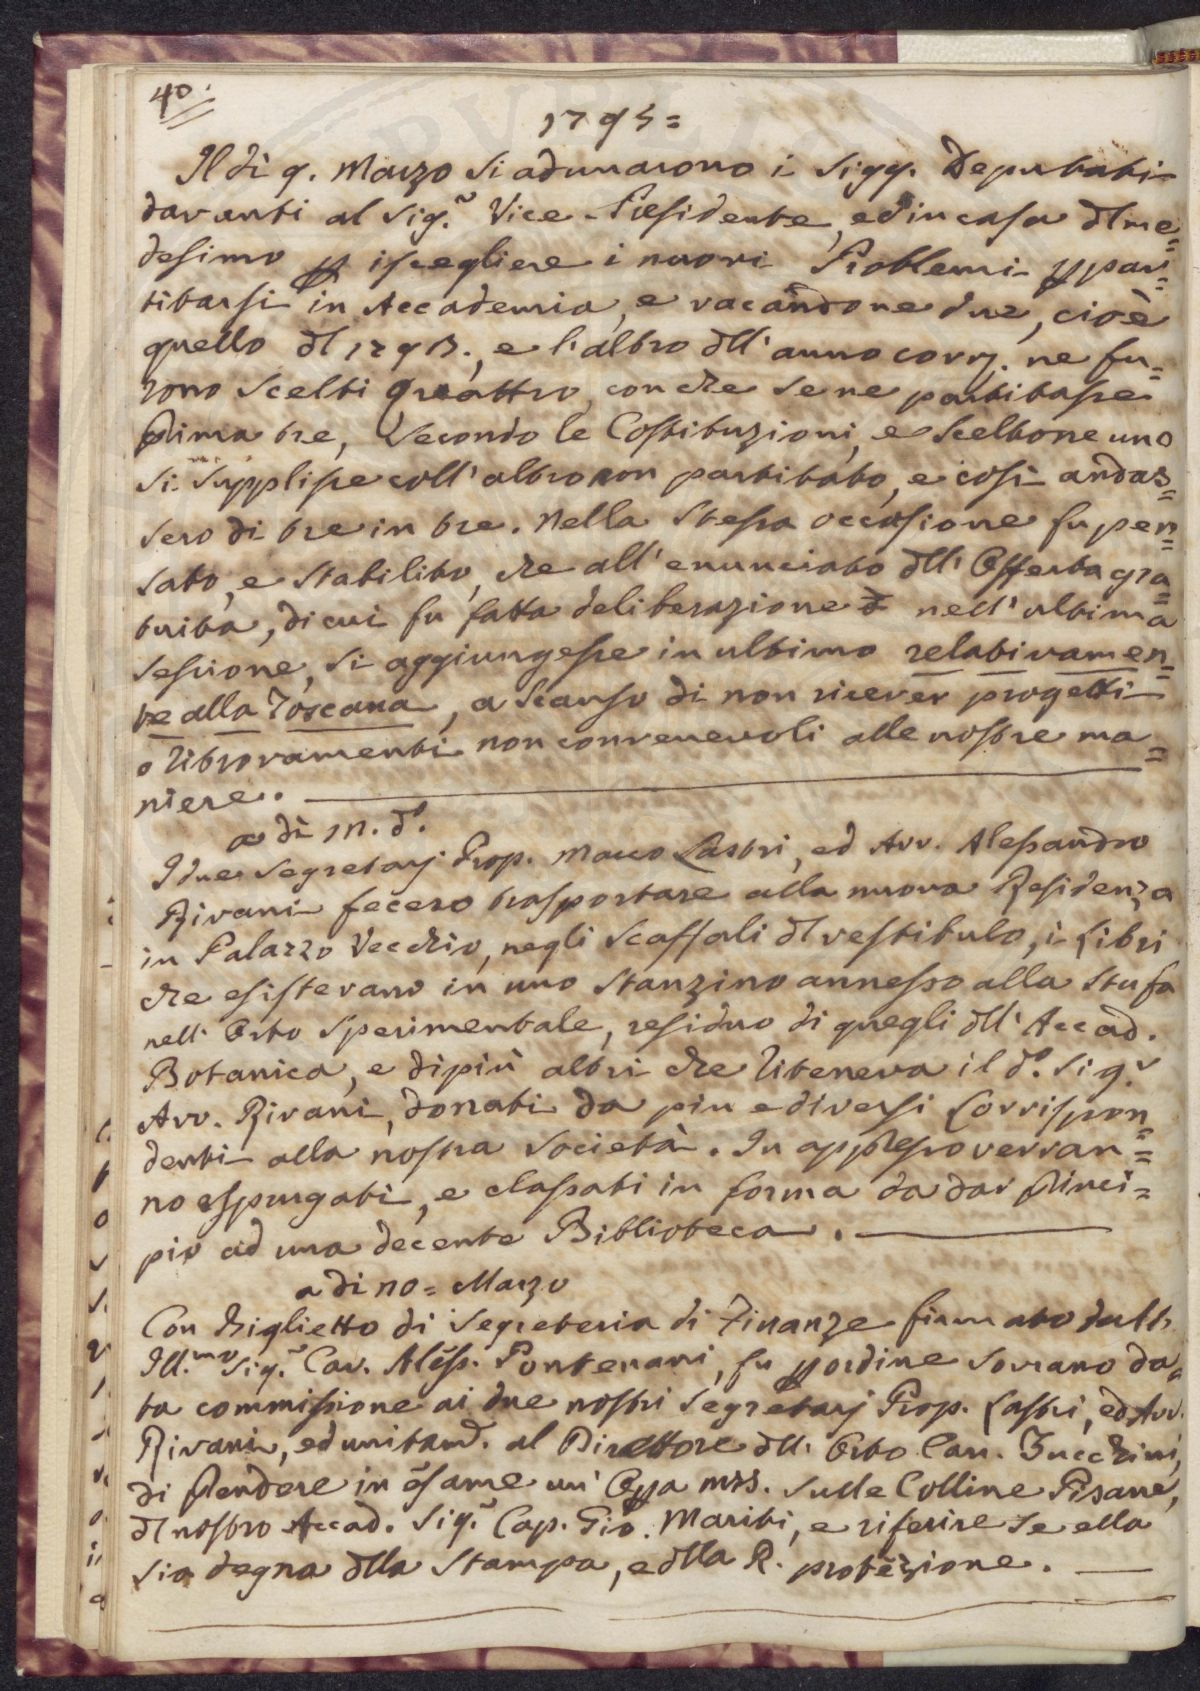 40.
1795=
Il dì 9. Marzo si adunarono i Sigg. Deputati
davanti al Sig.r Vice-Presidente, ed in casa dl me=
desimo p iscegliere i nuovi Problemi p par=
titarsi in Accademia, e vacandone due, cioè
quello dl 1793., e l'altro dll'anno corr. ne fu=
rono scelti quattro, con che se ne partitasse
prima tre, secondo le Costituzioni, e sceltone uno
si supplisse coll'altro non partitato, e così andas=
sero di tre in tre. Nella stessa occasione fu pen=
sato, e stabilito, che all'enunciato dll'Offerta gra=
tuita, di cui fu fatta deliberazione nell'ultima
sessione, si aggiungesse in ultimo relativamen=
te alla Toscana, a scanso di non ricever progetti
o ritrovamenti non convenevoli alle nostre ma=
niere.
a dì 11. d.o
I due Segretarj Prop. Marco Lastri, ed Avv. Alessandro
Rivani fecero trasportare alla nuova Residenza
in Palazzo Vecchio, negli Scaffali dl vestibulo, i Libri
che esistevano in uno Stanzino annesso alla stufa
nell'Orto Sperimentale, residuo di quegli dll'Accad.
Botanica, e di più altri che riteneva il d.o Sig.r
Avv. Rivani, donati da piu e diversi Corrispon=
denti alla nostra Società. In appresso verran=
no espurgati, e classati in forma da dar princi=
pio ad una decente Biblioteca.
a di 10= Marzo
Con Biglietto di Segreteria di Finanze firmato dall'
Ill.mo Sig.r Cav. Aless. Pontenani, fu p ordine sovrano da=
ta commissione ai due nostri Segretarj Prop. Lastri, ed Avv.
Rivani, ed unitam. al Direttore dll' Orto Can. Zucchini,
di prendere in esame un'Opa mss. sulle Colline Pisane,
dl nostro Accad. Sig.r Cap. Gio. Mariti, e riferire se ella
sia degna dlla Stampa, e dlla R. protezione.